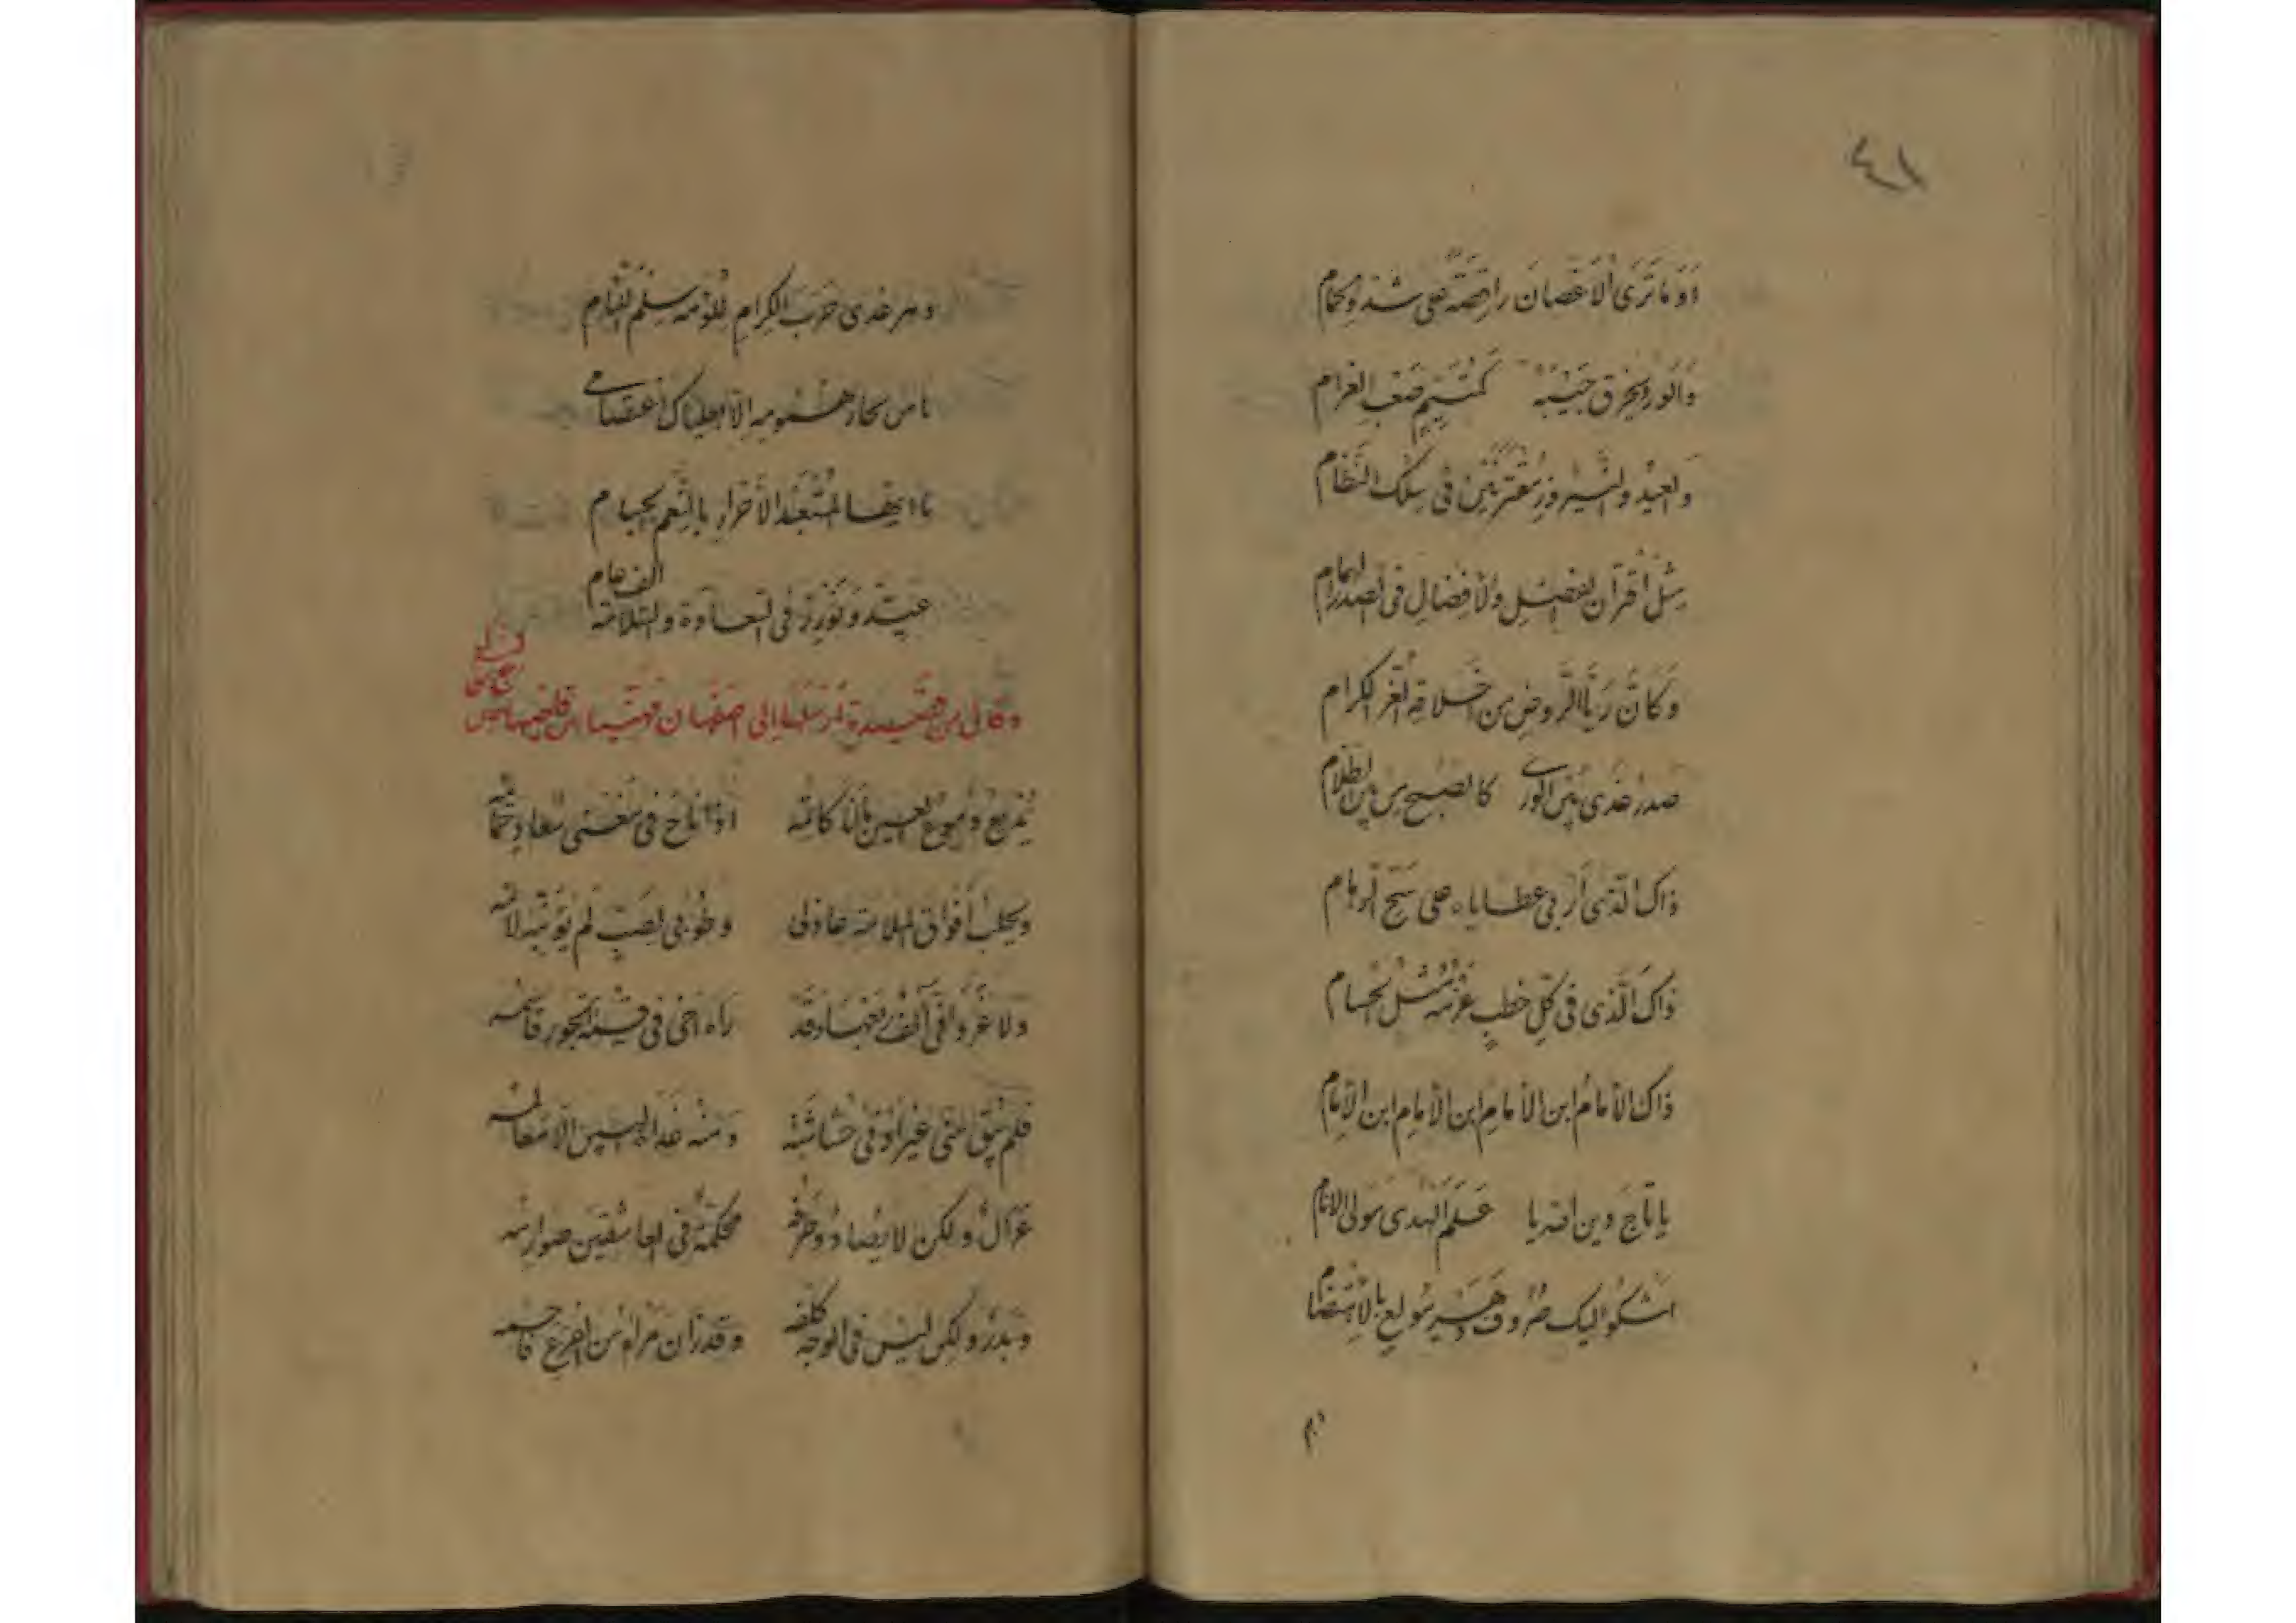 أوما ترى الأغصان راقصة على شدو الحمام
والورد يخرق جيبه كمتيم صعب الغرام
والعيد والنيروز مقترنين في سلك النظام
مثل اقتران الفضل والأفضال في الصدر الهمام
وكأن ريا الروض من أخلاقه الغر الكرام
صدر غدى بين الورى كالصبح من بين الظلام
ذاك الذي أربى عطاياه على سح الرهام
ذاك الذي في كل خطب عزمه مثل الحسام
ذاك الإمام ابن الإمام ابن الإمام ابن الإمام
يا تاج دين الله يا علم الهدى مولى الأنام
أشكو إليك صروف دهر مولع بالاهتضام
دهر غدى حرب الكرام للؤمه سلم اللئام
ما من بحار همومه إلا بعلياك اعتصامي
يا أيها المستعبد الأحرار بالنعم الجسام
عيّد ونورز في السعادة والسلامة ألف عام
وقال من قصيدة أرسلها إلى اصفهان
يذيع دموع العين ما أنا كاتمه إذا ناح في مغنى سعاد حمائمه
ويحلب أفواق الملامة عاذلي وطوبى لصب لم يؤنبه لائمه
فلم يبق مني غير أدنى حشاشة ومنه غداة البين إلا معالمه
غزال ولكن لا يصاد وطرفه محكمة في العاشقين صوارمه
وبدر ولكن ليس في الوجه كلفه وقد زان مرآه من الفرع فاحمه